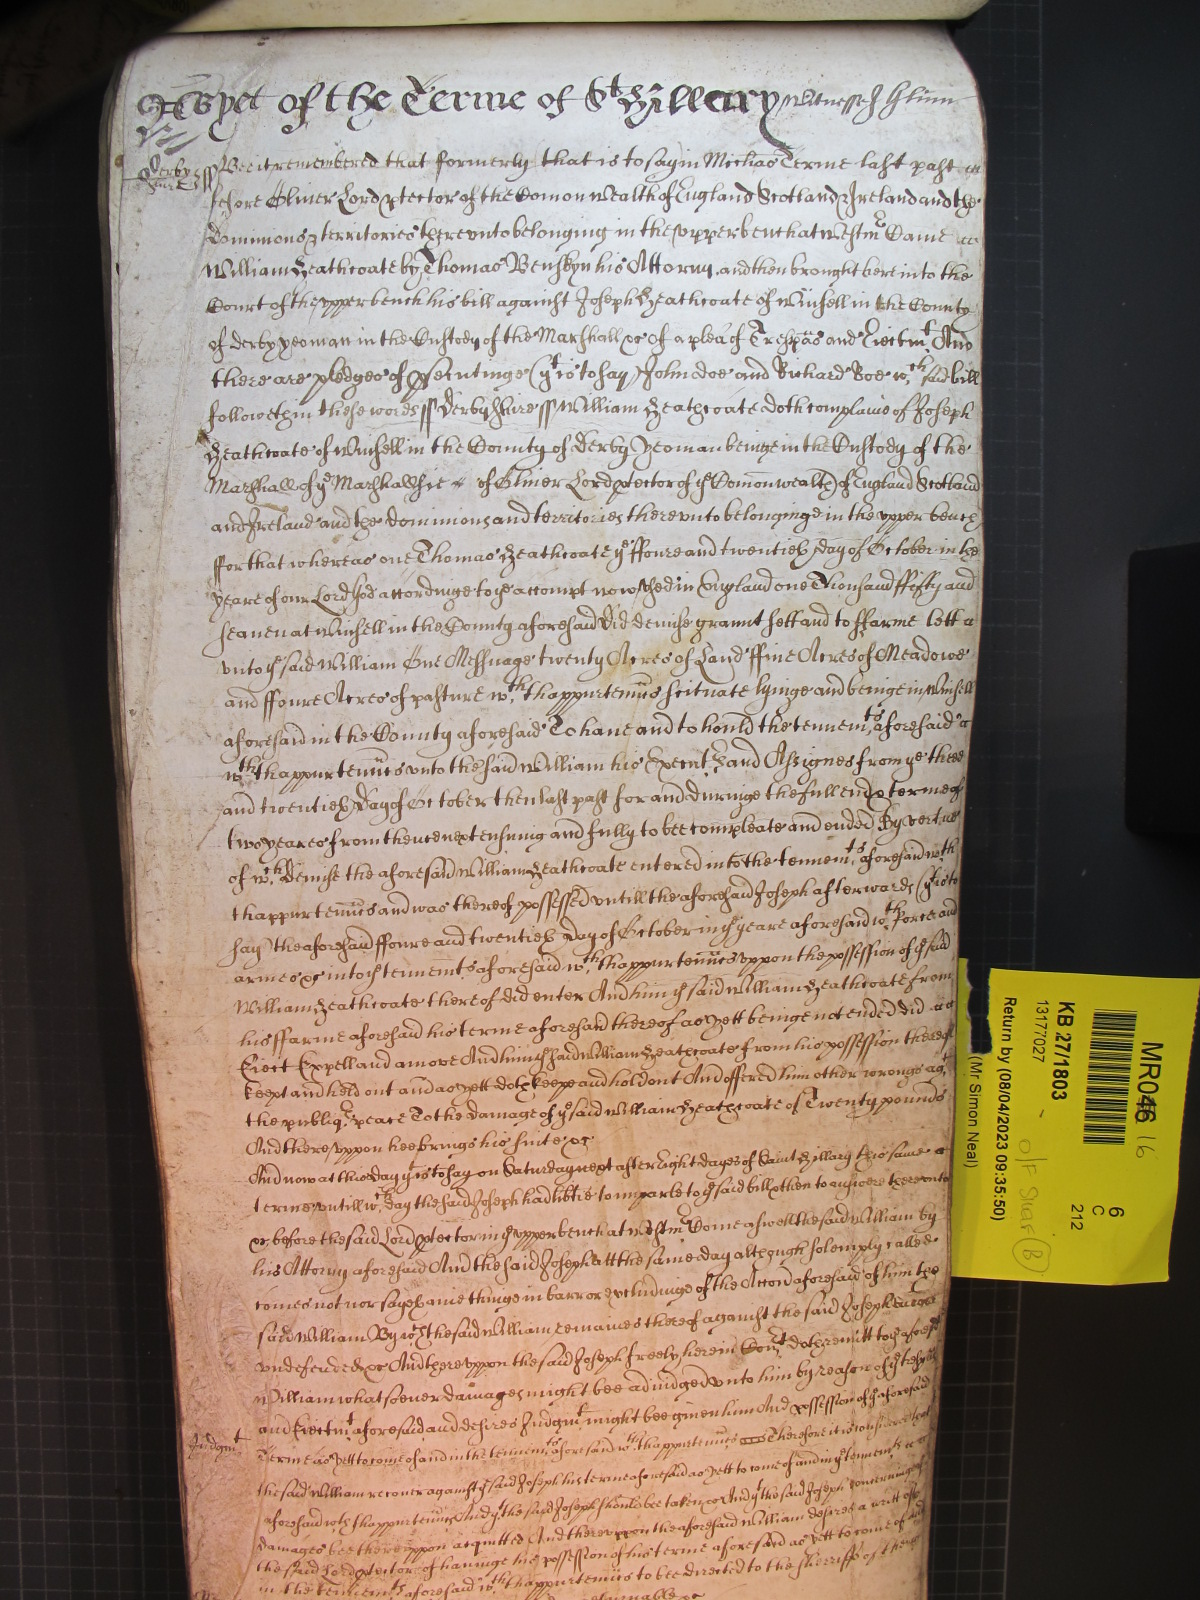 Yet of the Terme of St Hillary Witnesseth Glinn
Derby
shire ss Bee it remembred that formerly that is to say in Michās Terme last past
before Oliver Lord ptector of the Comon Wealth of England Scotland & Ireland and the
dominions & territories thereunto belonging in the upper bench at Westmr Came
William Heathcoate by Thomas Benskyn his Attorny and then brought here into the
Court of the upper bench his bill against Joseph Heathcoate of Winsell in the County
of derby yeoman in the Custody of the Marshall &c of a plea of Trespas and Eiectmt And
there are pledges of psecutinge (yt is to say) John doe and Richard Roe wch said bill
followeth in these words ss Derbyshire ss William Heathcoate doth complaine of Joseph
Heathcoate of Winsell in the County of derby yeoman beinge in the Custody of the
Marshall of ye Marshallsie of Oliver Lord ptector of ye Comonwealth of England Scotland
and Ireland and the dominions and territories thereunto belonginge in the upper bench
ffor that whereas one Thomas Heathcoate ye ffoure and twentieth day of October in the
yeare of our Lord God accordinge to ye accompt now used in England one Thousand ffifty and
seaven at Winsell in the County aforesaid did demise graunt sett and to ffarme lett
unto ye said William One Messuage twenty Acres of Land ffive Acres of Meadowe
and ffoure Acres of pasture wth thappurtenncs scituate lyinge and beinge in Winsell
aforesaid in the County aforesaid To have and to hould the tenemts aforesaid
wth thappurtenncs unto the said William his Execut &c and Assignes from ye three
and twentieth day of October then last past for and duringe the full end & terme of
two yeares from thence next ensuing and fully to bee compleate and ended By vertue
of wch demise the aforesaid William Heathcoate entered into the tenemts aforesaid wth
thappurtenncs and was thereof possessed untill the aforesaid Joseph afterwards (yt is to
say) the aforesaid ffoure and twentieth day of October in ye yeare aforesaid wth Force and
armes &c into ye tenemts aforesaid wth thappurtenncs uppon the possession of ye said
William Heathcoate thereof did enter And him ye said William Heathcoate from
his ffarme aforesaid his terme aforesaid thereof as yett beinge not ended did
Eiect Expell and amove And him ye said William Heathcoate from his possession thereof
keept and held out and as yett doth keepe and hold out And offered him other wrongs agt
the publiq peace To the damage of ye said William Heathcoate of Twenty pounds
And thereuppon hee brings his suite &c
And now at this day yt is to say on Saturday next after Eight dayes of Saint Hillary this same
terme untill wch day the said Joseph had libtie to imparle to ye said bill & then to answere thereunto
&c before the said Lord ptector in ye upper bench at Westmr Come aswell the said William by
his Attorny aforesaid And the said Joseph att the same day although solemply called
comes not nor sayeth anie thinge in barr or excludinge of the Accon aforesaid of him the
said William By wch the said William remaines thereof against the said Joseph
undefended &c And thereuppon the said Joseph freely herein Court doth remitt to ye aforesd
William whatsoever damages might bee adiudged unto him by reason of ye trespas
and Eiectmt aforesaid and desires Judgmt might bee given him And possession of ye aforesaid
Judgmt
Terme as yett to come of and in the tenemts aforesaid wth thappurtenncs Therefore it is considered that
the said William recover against ye said Joseph his terme aforesaid as yett to come of and in ye tenemts
aforesaid wth thappurtenncs And yt the said Joseph should bee taken &c And yt the said Joseph concerninge
damages bee thereuppon acquitted And thereuppon the aforesaid William desires a writt of
the said Lord ptector of havinge his possession of his terme aforesaid as yett to come of and
in the tenemts aforesaid wth thappurtenncs to bee directed to the sherriffe of the
returnable &c
MR046 16
KB 27/1803
13177027
Return by (08/04/2023 09:35:50)
(Mr Simon Neal)
6
C
212
O/F Shelf B